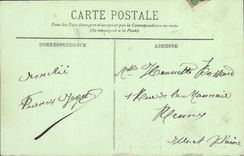 CARTE POSTALE
Tous les Pays étrangers n'acceptent pas la Correspondance au recto.
(Se renseigner à la Poste)
CORRESPONDANCE
ADRESSE
Amitié
Mlle Henriette
1 Rue de la Monnaie
Rennes
Ille et Vilaine